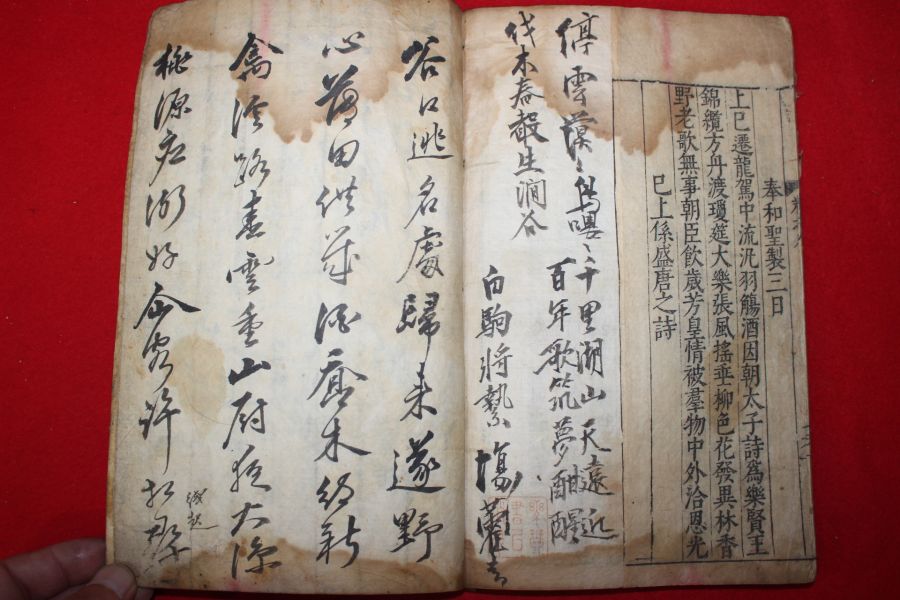 奉和聖製三日
上巳遷龍駕中流汎羽觴酒因朝太子詩爲樂賢王
錦纜方舟渡瓊筵大樂張風搖垂柳色花發異林香
野老歌無事朝臣飲歲芳皇情被羣物中外洽恩光
已上係盛唐之詩
停雲漠〻鳥嚶〻千里湖山天遠近
百年歌筑夢酣醒
伐木春聲生澗谷
白駒將縶場藿
谷口逃名處歸來遂野
心薄田供歲酒喬木新
禽溪路春雲重山廚夜火深
桃源應漸好仙客許相尋